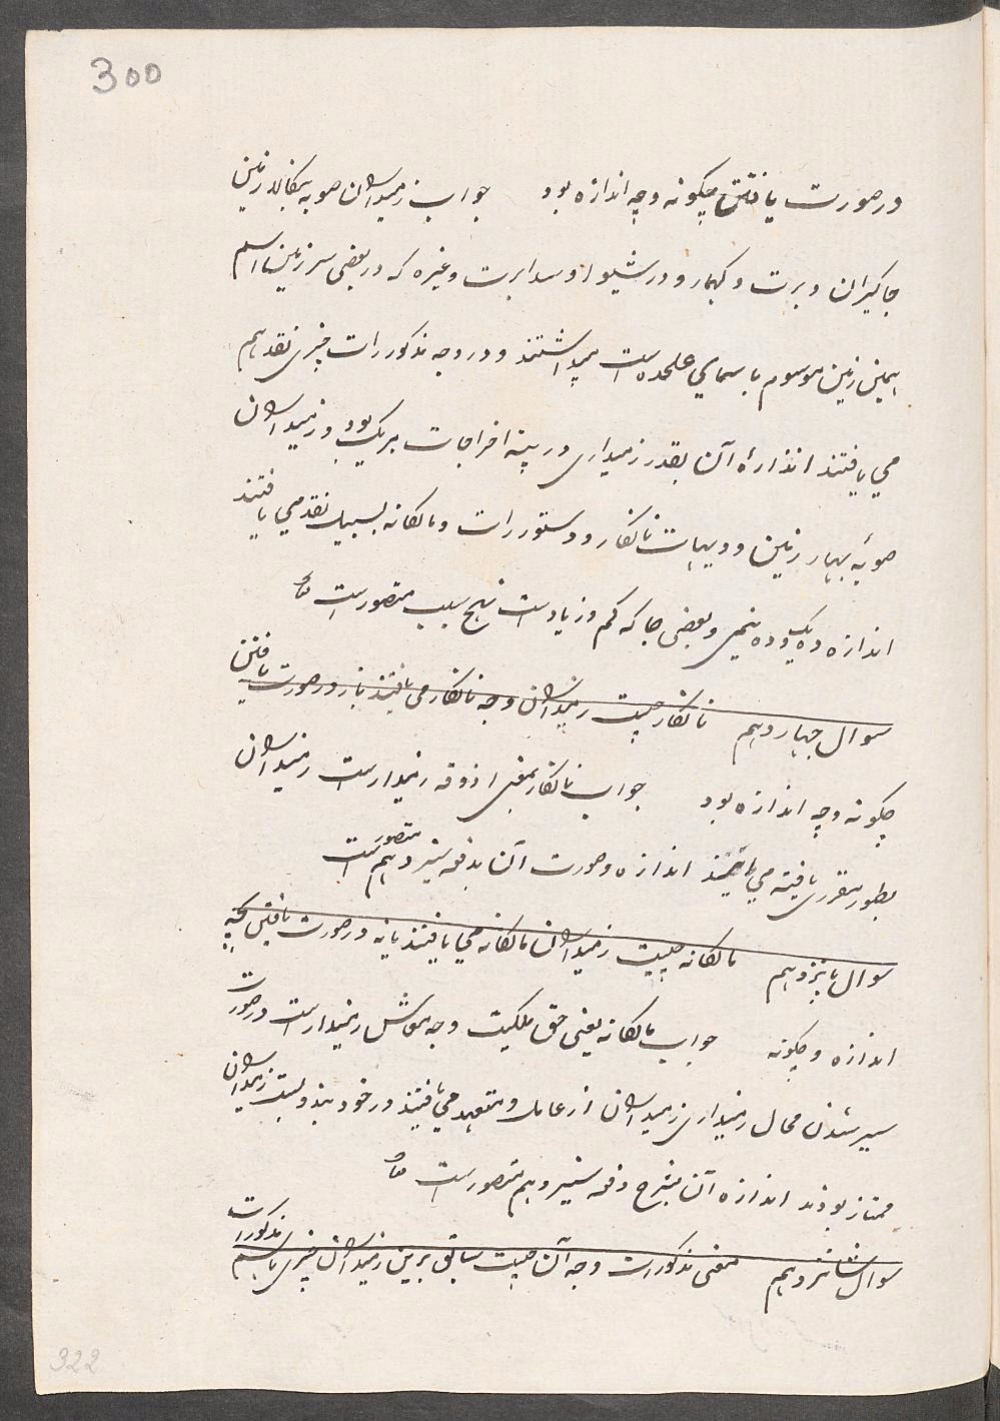 300
درصورت یافتن چگونه وچه اندازه بود جواب زمینداران صوبه بنگاله زمین
جاگیران و برت و کهمار و در شیوار و سدابرت وغیره که در بعضی سرزمین اسم
همین زمین موسوم باسمای علحده است میداشتند و در وجه مذکورات چیزی نقد هم
می یافتند اندازهٔ آن بقدر زمینداری در پته اخراجات هریک بود و زمینداران
صوبهٔ بهار زمین و دیهات نانکار و دستورات و مالکانه بسبیل نقد می یافتند
اندازه ده یک و ده نیمی و بعضی جا که کم و زیادست نهج سبب متصورست
سوال چهاردهم نانکار چیست زمینداران وجه نانکار می یافتند یا نه و درصورت یافتن
چگونه وچه اندازه بود جواب نانکار بمعنی اذوقه زمیندارست زمینداران
بطور مقرری یافته می یافتند اندازه وصورت آن بدفعه سیزدهم متصورست
سوال پانزدهم مالکانه چیست زمینداران مالکانه می یافتند یا نه درصورت یافتن بچه
اندازه و چگونه جواب مالکانه یعنی حق ملکیت وجه معاش زمیندارست درصورت
سیر شدن محال زمینداری زمینداران از عامل و متعهد می یافتند و در خود بندوبست زمینداران
ممتاز بودند اندازه آن بشرح دفعه سیزدهم متصورست
سوال شانزدهم معنی مذکورات وجه آن چیست سابق برین زمینداران چیزی باسم مذکورات
322